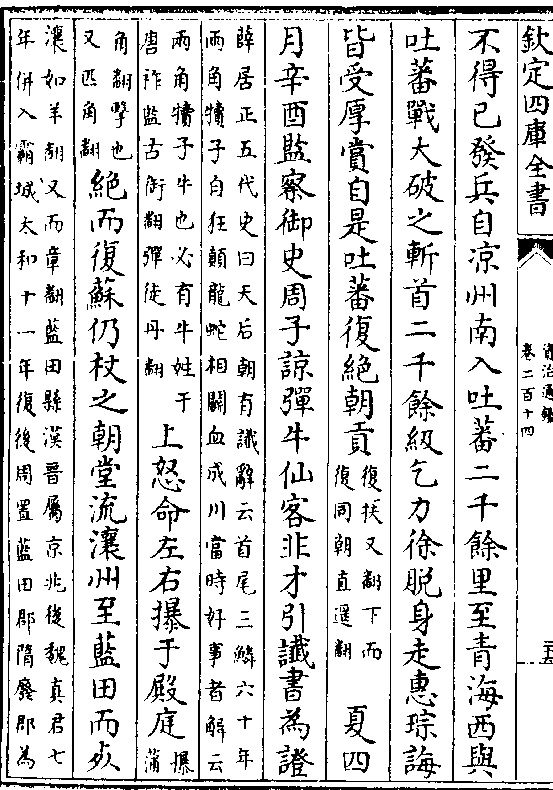 欽定四庫全書
資治通鑑
卷二百十四
不得已發兵自涼州南入吐蕃二千餘里至青海西與
吐蕃戰大破之斬首二千餘級乞力徐脫身走惠琮誨
皆受厚賞自是吐蕃復絶朝貢
復扶又翻下而
復同朝直遥翻
夏四
月辛酉監察御史周子諒彈牛仙客非才引讖書為證
薛居正五代史曰天后朝有讖辭云首尾三鱗六十年
兩角犢子自狂顛龍蛇相鬬血成川當時好事者解云
兩角犢子牛也必有牛姓干
唐祚監古銜翻彈徒丹翻
上怒命左右㩧于殿庭
㩧
蒲
角翻擊也
又匹角翻
絶而復蘇仍杖之朝堂流瀼州至藍田而死
瀼如羊翻又而章翻藍田縣漢晉屬京兆後魏真君七
年併入霸城太和十一年復後周置藍田郡隋廢郡為